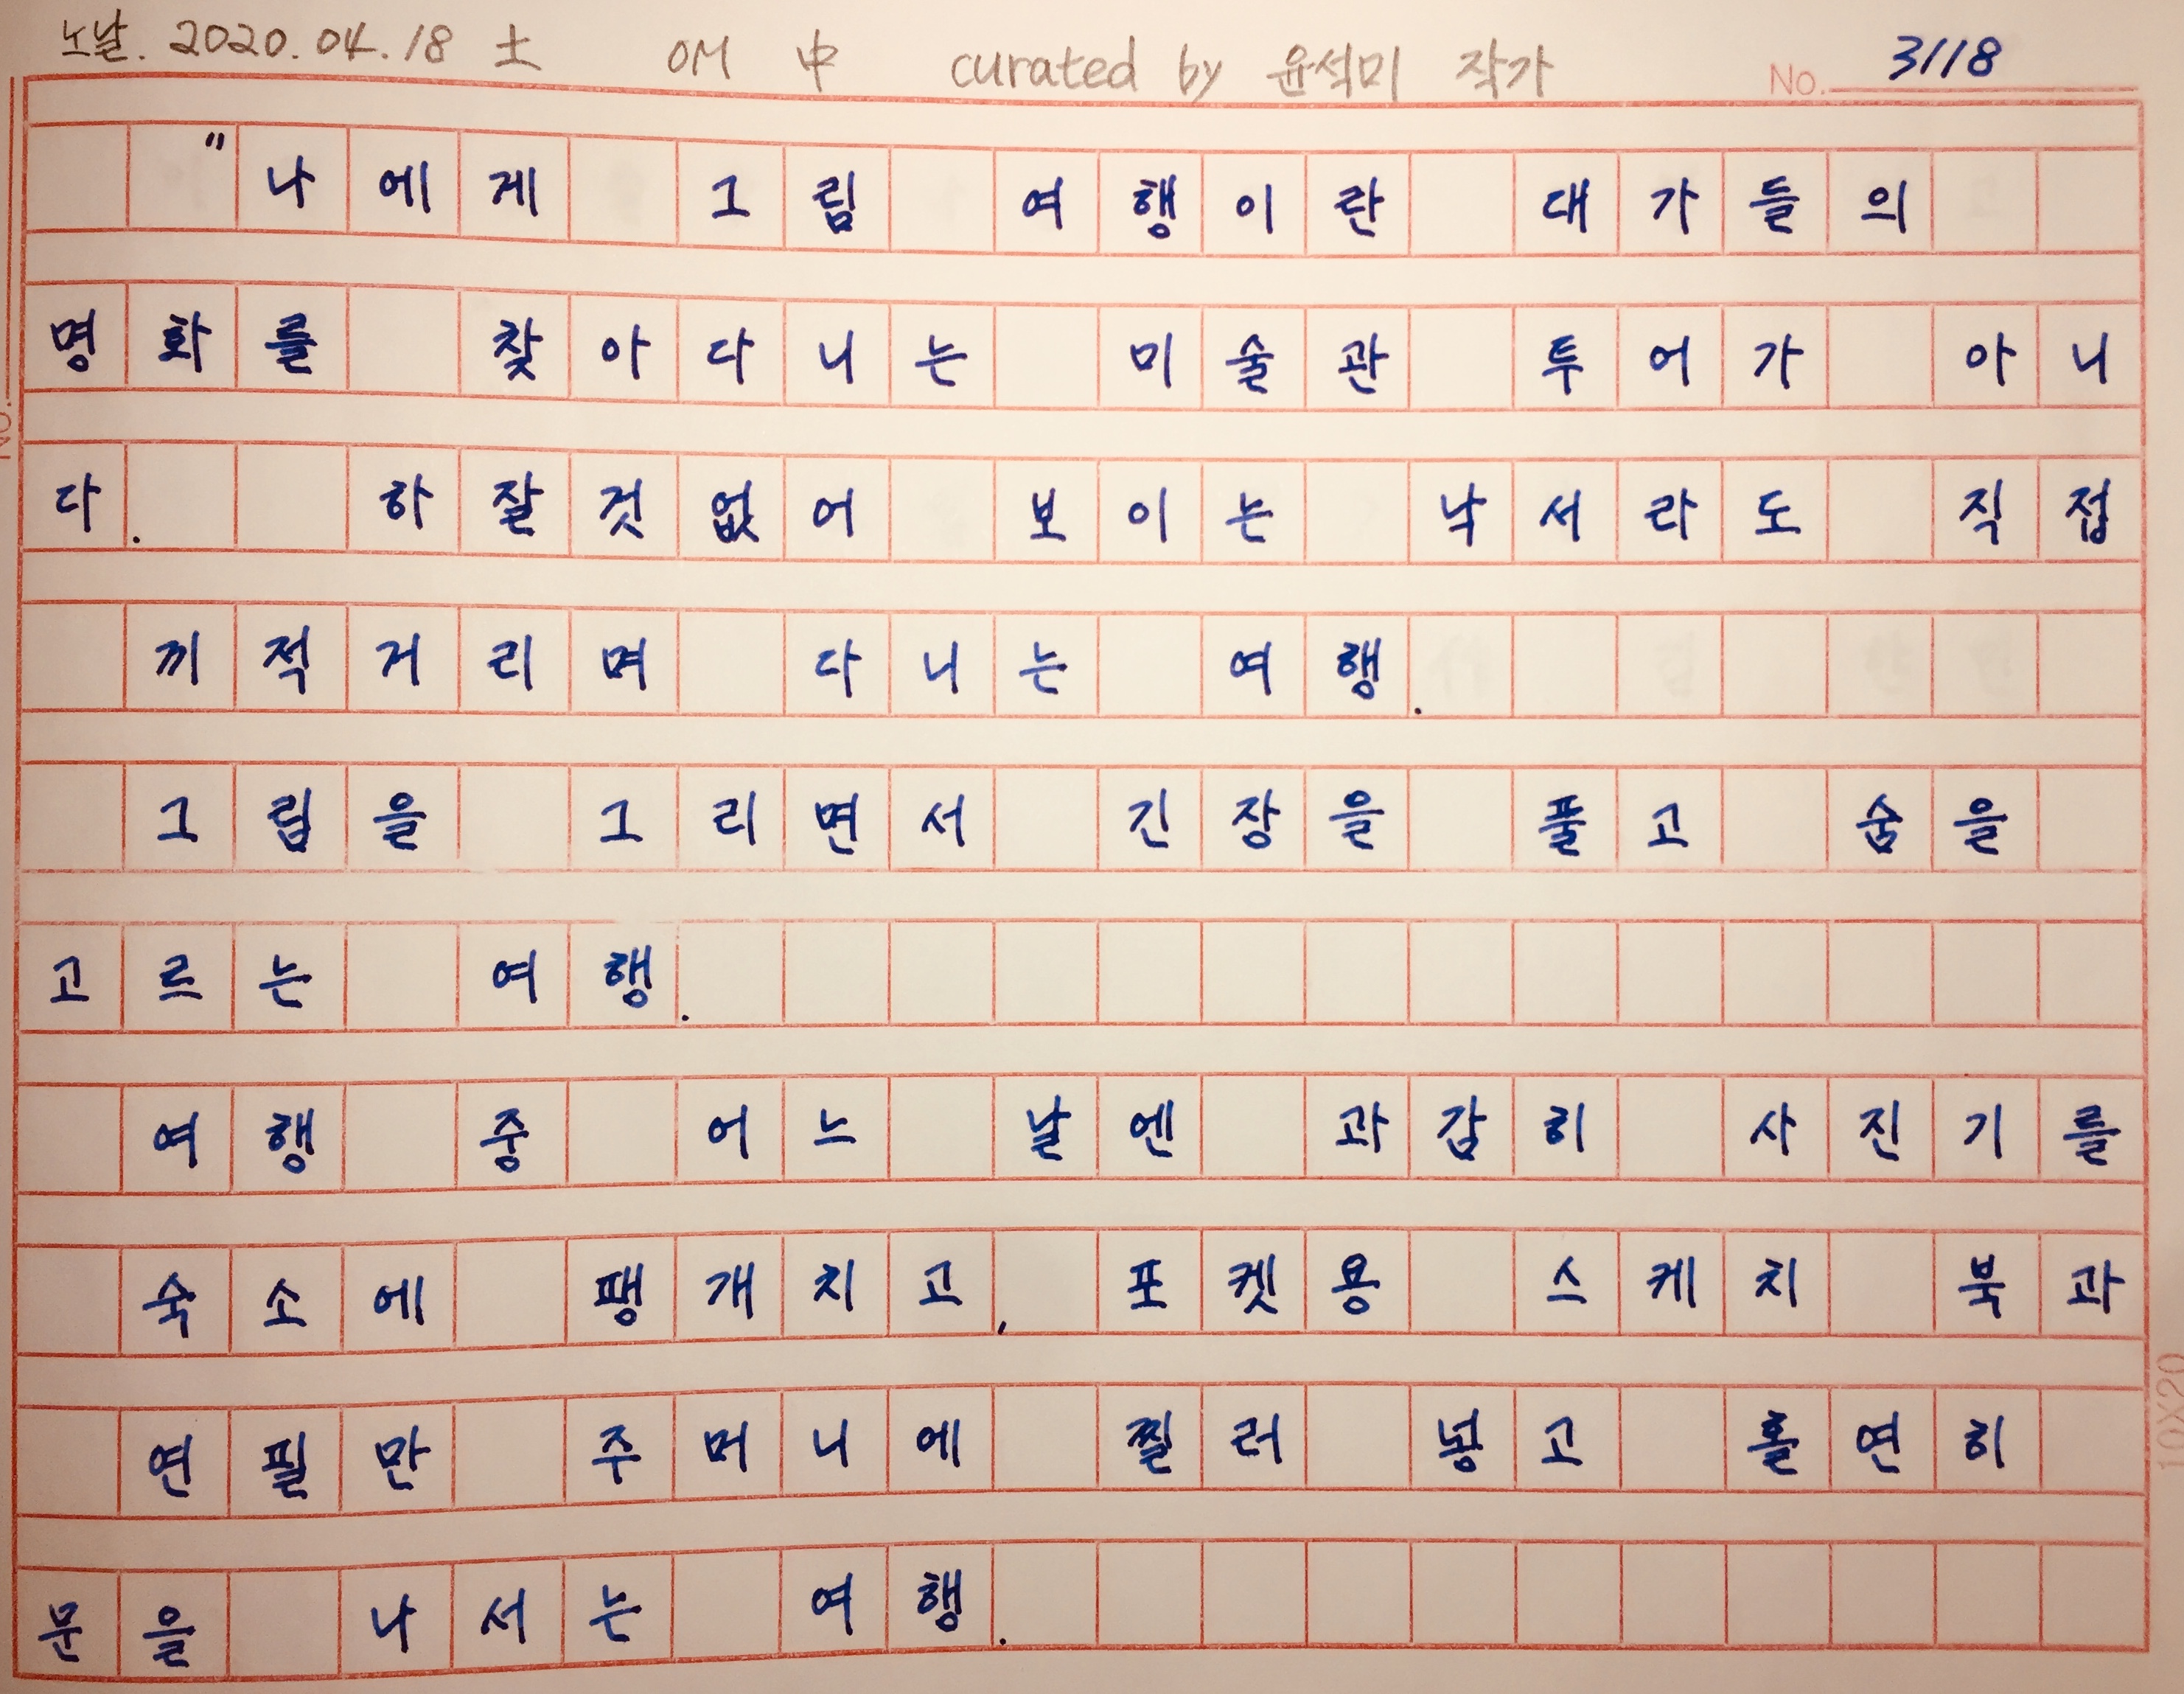 노날. 2020.04.18 土 OM 中 curated by 윤석미 작가 No. 3118
"나에게 그림 여행이란 대가들의
명화를 찾아다니는 미술관 투어가 아니
다. 하잘것없어 보이는 낙서라도 직접
끼적거리며 다니는 여행.
그림을 그리면서 긴장을 풀고 숨을
고르는 여행.
여행 중 어느 날엔 과감히 사진기를
숙소에 팽개치고, 포켓용 스케치 북과
연필만 주머니에 찔러 넣고 홀연히
문을 나서는 여행.
No.
10X20